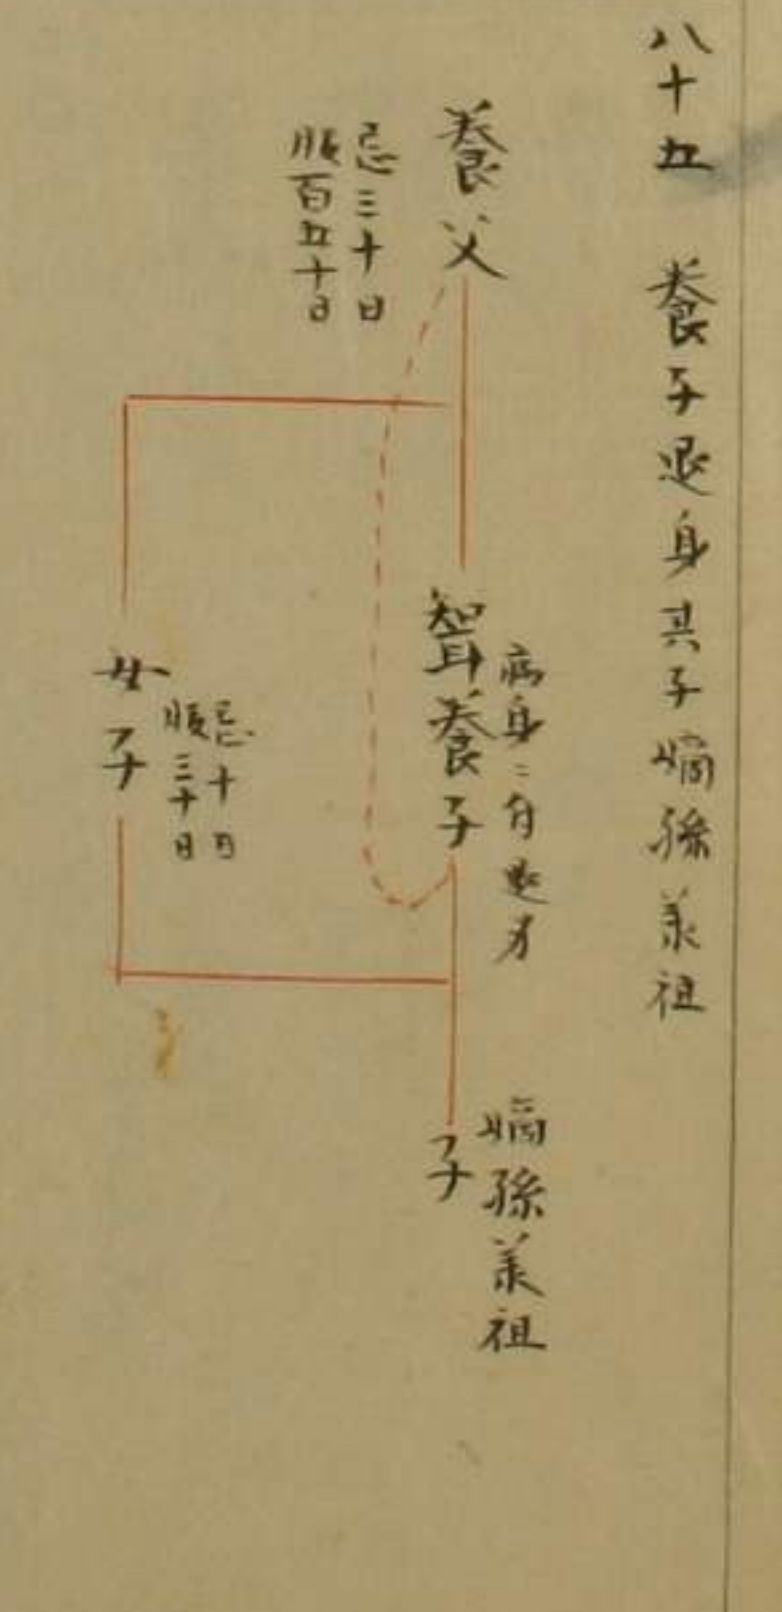 八十五 養子退身其子嫡孫承祖
養父
忌三十日
服百五十日
病身ニ付退身
聟養子
忌十日
服三十日
女子
嫡孫承祖
子